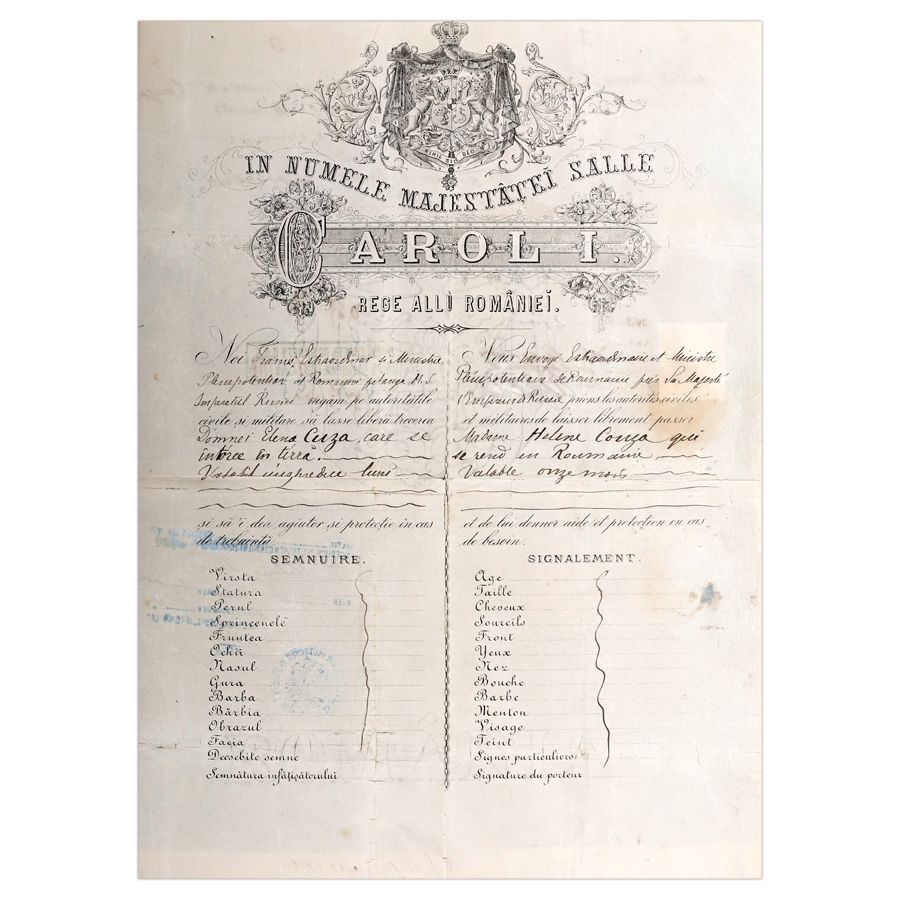 NIHIL SINE DEO
IN NUMELE MAJESTĂȚEĬ SALLE
CAROL I.
REGE ALLŬ ROMÂNIEĬ.
Noi Trimis Estraordinar și Ministru
Plenipotențiar al României pe langa M. S.
Imperatul Rusiei rugăm pe autoritățile
civile și militare să lasse liberă trecerea
Domnei Elena Cuza, care se
întorce în terră.
Valabil unspredece luni
și să 'i dea ajutor și protecție în cas
de trebuință.
SEMNUIRE.
Vîrsta
Statura
Pĕrul
Sprincenele
Fruntea
Ochii
Nasul
Gura
Barba
Bărbia
Obrazul
Facia
Deosebite semne
Semnătura înfățișătorului
Nous Envoyé Extraordinaire et Ministre
Plénipotentiaire de Roumanie près Sa Majesté
l'Empereur de Russie prions les autorités civiles
et militaires de laisser librement passer
Madame Hélène Couza qui
se rend en Roumanie
Valable onze mois
et de lui donner aide et protection en cas
de besoin.
SIGNALEMENT.
Age
Taille
Cheveux
Sourcils
Front
Yeux
Nez
Bouche
Barbe
Menton
Visage
Teint
Signes particuliers
Signature du porteur